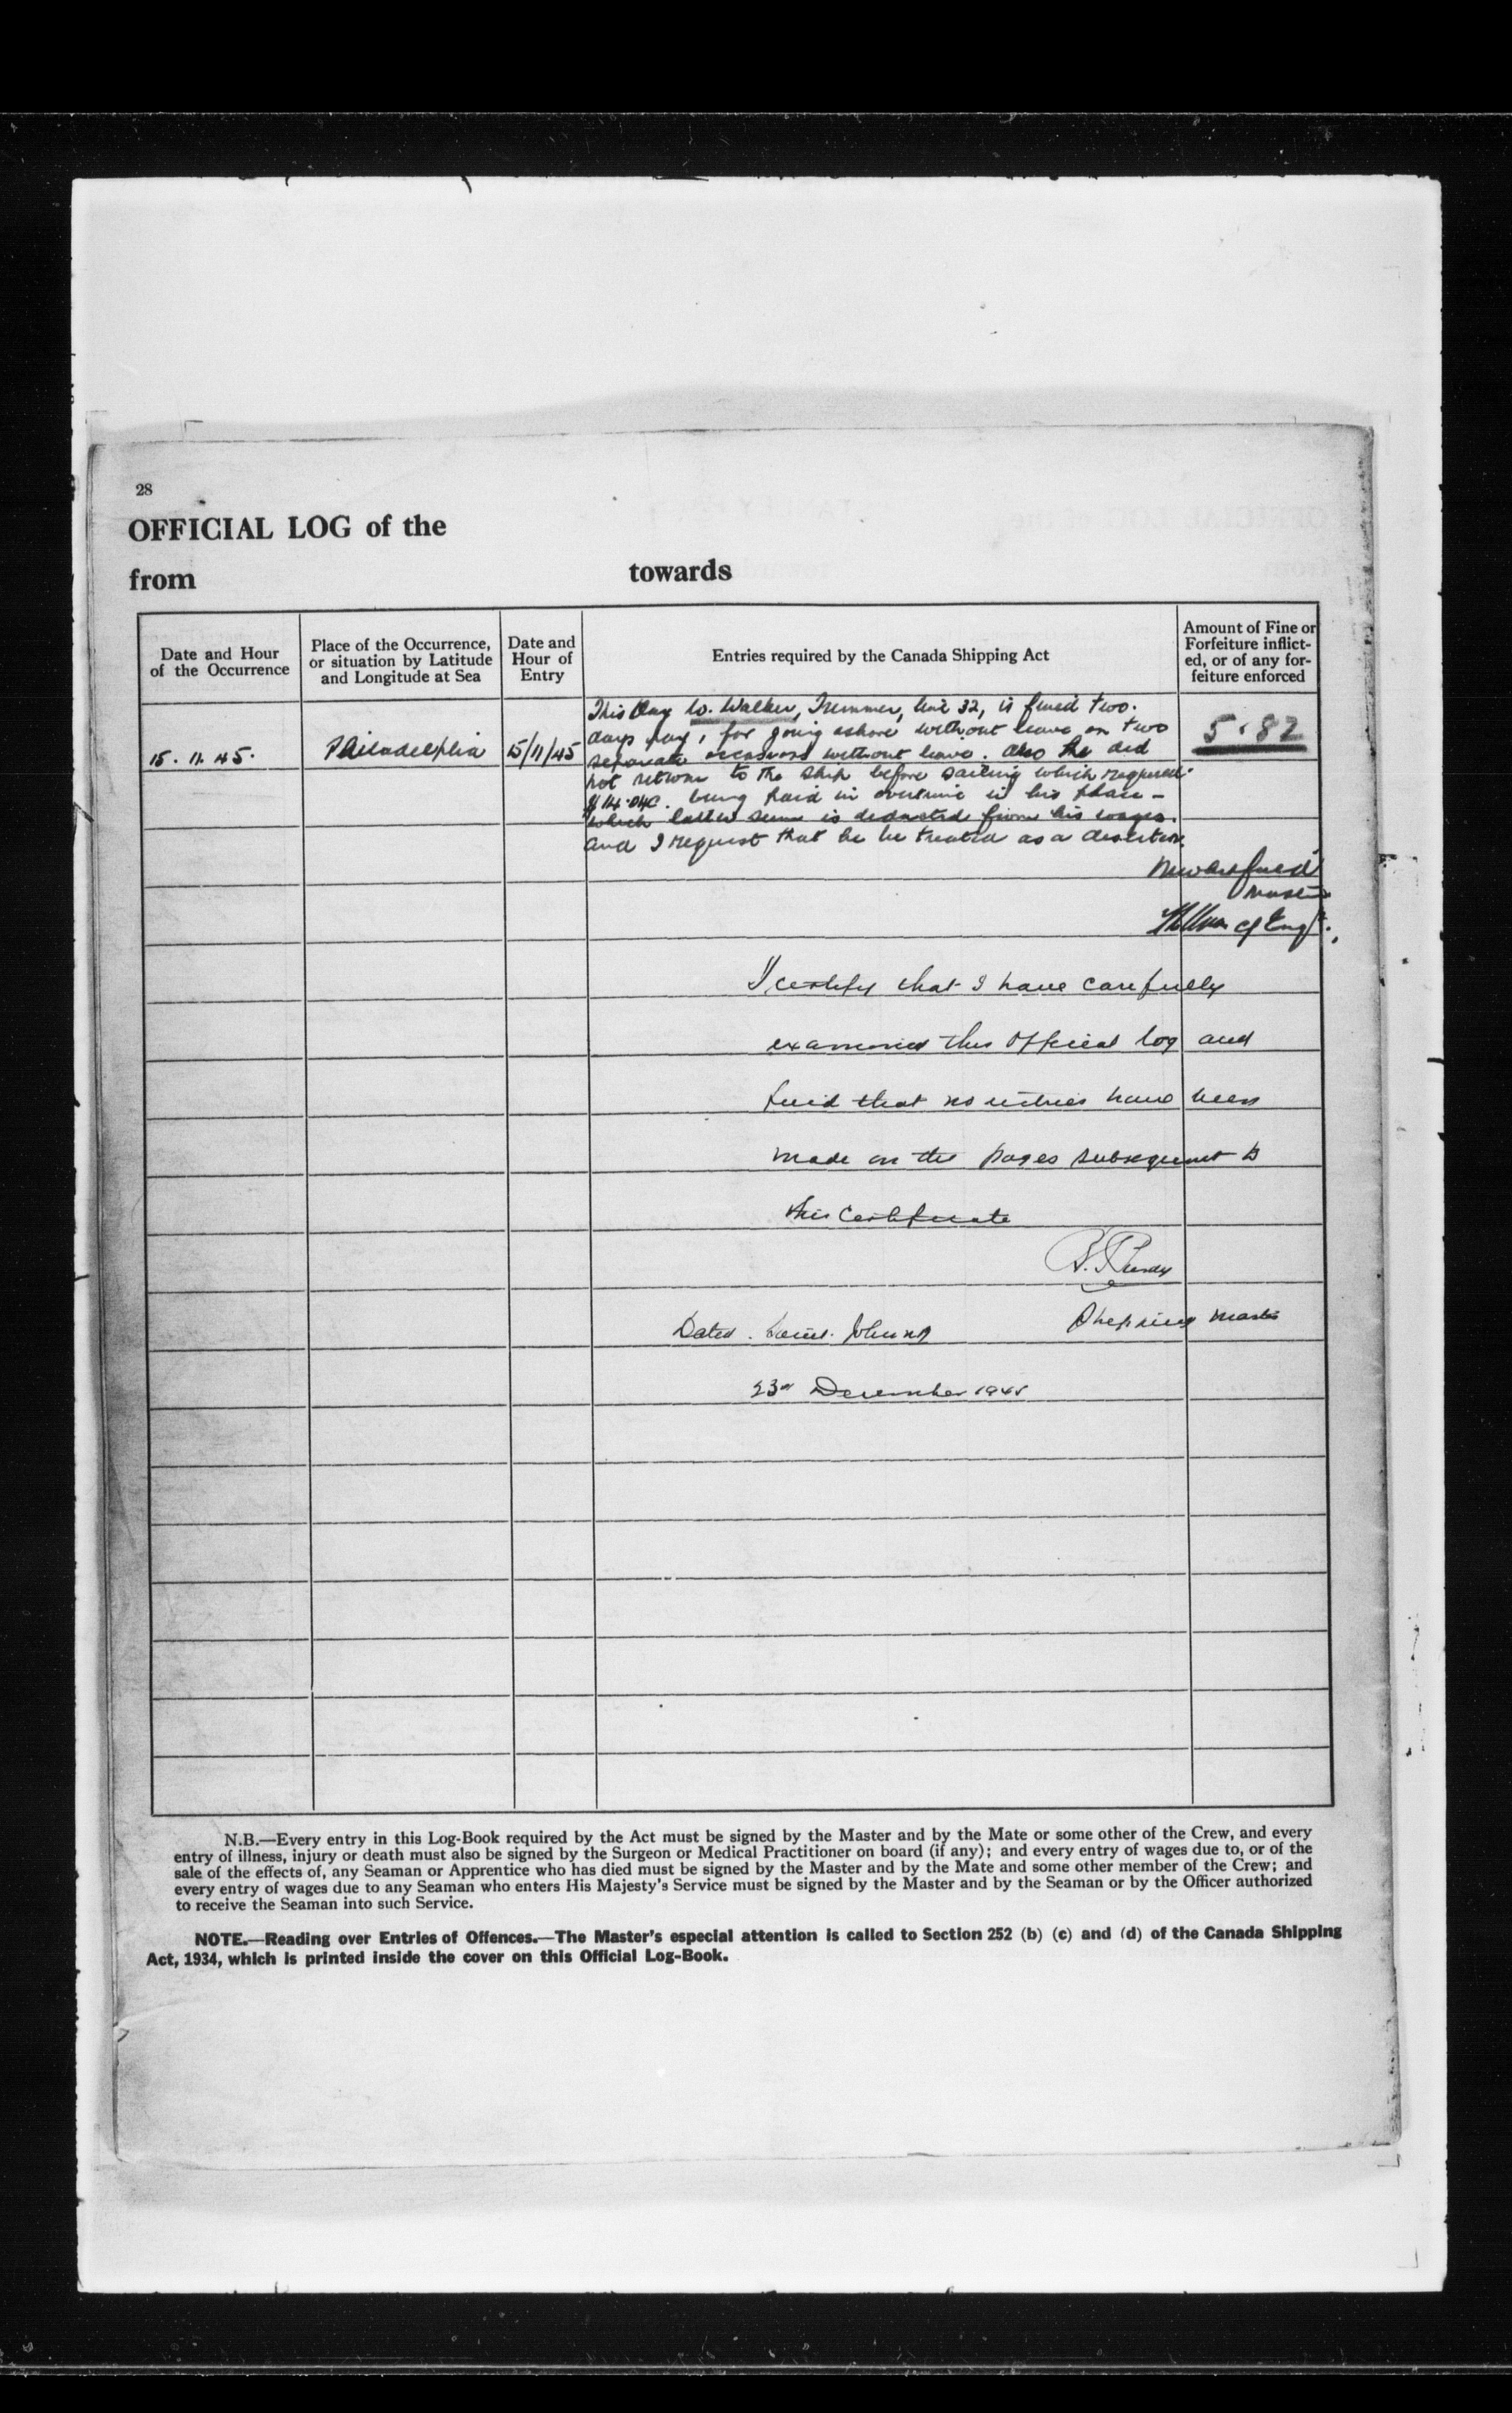 28
OFFICIAL LOG of the
from towards
Date and Hour of the Occurrence
Place of the Occurrence, or situation by Latitude and Longitude at Sea
Date and Hour of Entry
Entries required by the Canada Shipping Act
Amount of Fine or Forfeiture inflicted, or of any forfeiture enforced
15. 11. 45. Philadelphia 15/11/45 5.82
This day W. Walker, Trimmer, line 32, is fined two
days pay, for going ashore without leave on two
separate occasions without leave. Also he did
not return to the ship before sailing which required
$14.04c. being paid in overtime in his place –
which latter sum is deducted from his wages.
and I request that he be treated as a deserter.
Master
I certify that I have carefully
examined this Official log and
find that no entries have been
made on the pages subsequent to
this Certificate
Shipping Master
Dated. Saint John NB
23rd December 1945
N.B.—Every entry in this Log-Book required by the Act must be signed by the Master and by the Mate or some other of the Crew, and every
entry of illness, injury or death must also be signed by the Surgeon or Medical Practitioner on board (if any); and every entry of wages due to, or of the
sale of the effects of, any Seaman or Apprentice who has died must be signed by the Master and by the Mate and some other member of the Crew; and
every entry of wages due to any Seaman who enters His Majesty's Service must be signed by the Master and by the Seaman or by the Officer authorized
to receive the Seaman into such Service.
NOTE.—Reading over Entries of Offences.—The Master's especial attention is called to Section 252 (b) (c) and (d) of the Canada Shipping
Act, 1934, which is printed inside the cover on this Official Log-Book.